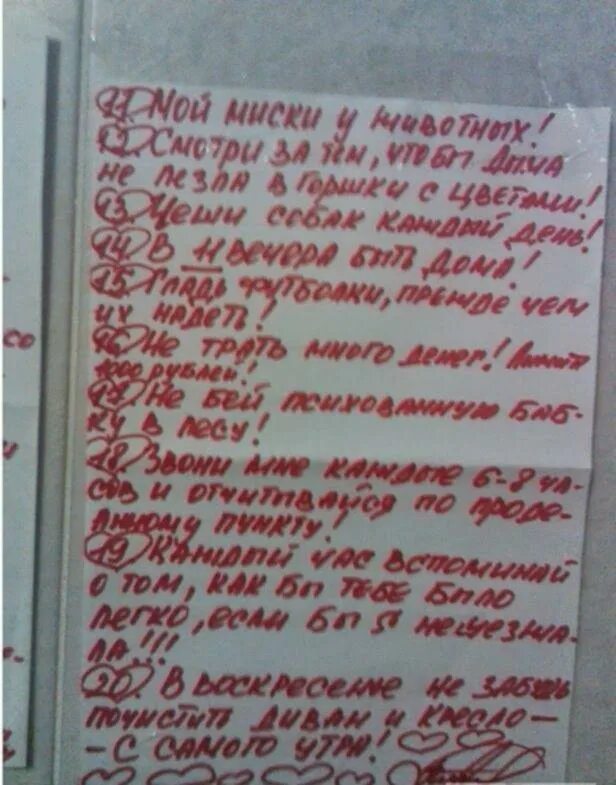 11. Мой миски у животных!
12. Смотри за тем, чтобы Дына
не лезла в горшки с цветами!
13. Чеши собак каждый день!
14. В 11 вечера быть дома!
15. Гладь футболки, прежде чем
их надеть!
16. Не трать много денег! Лимит
1000 рублей!
17. Не бей психованную баб-
ку в лесу!
18. Звони мне каждые 6-8 ча-
сов и отчитывайся по проде-
ланному пункту!
19. Каждый час вспоминай
о том, как бы тебе было
легко, если бы я не уезжа-
ла!!!
20. В воскресение не забудь
почистить диван и кресло —
– с самого утра!
со